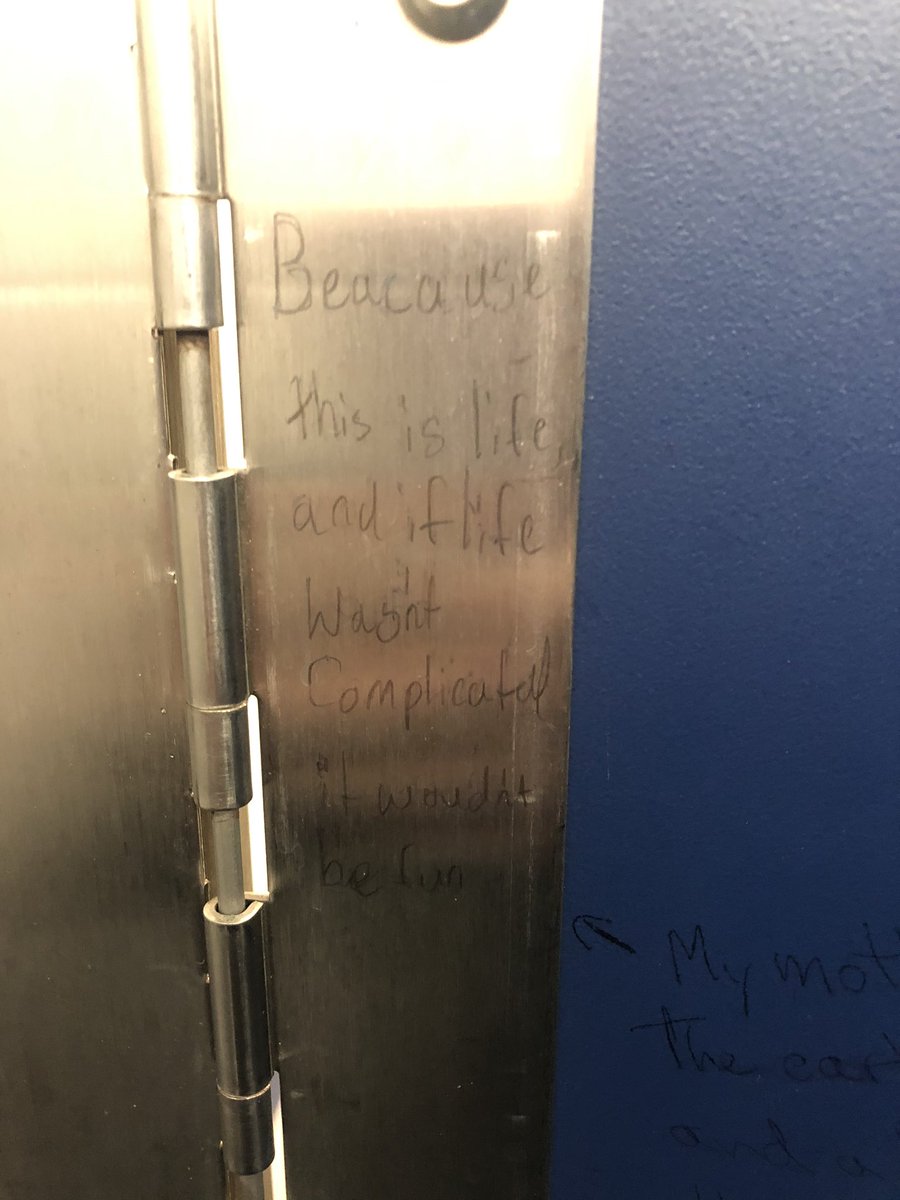 Beacause
this is life,
and if life
Wasn't
Complicated
it woudn't
be fun
My mot
the eart
and a